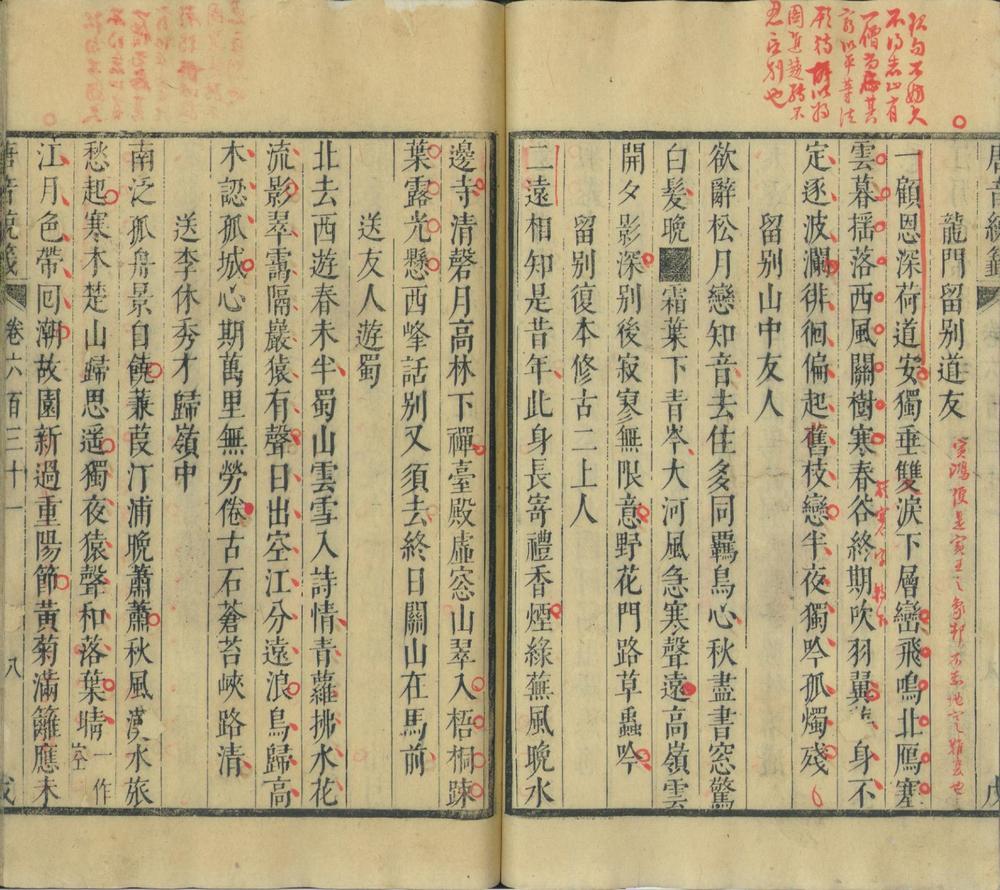 龍門留别道友
一顧恩深荷道安獨垂雙淚下層巒飛鳴北鴈塞
雲暮揺落西風關樹寒春谷終期吹羽翼身不
定逐波瀾徘徊偏起舊枝戀半夜獨吟孤燭殘
留别山中友人
欲辭松月戀知音去住多同羈鳥心秋盡書窓驚
白髮晚霜葉下青岑大河風急寒聲遠高嶺雲
開夕影深别後寂寥無限意野花門路草蟲吟
留别復本修古二上人
二遠相知是昔年此身長寄禮香煙綠蕪風晚水
邊寺清磬月高林下禪臺殿虛窓山翠入梧桐踈
葉露光懸西峰話别又須去終日關山在馬前
送友人遊蜀
北去西遊春未半蜀山雲雪入詩情青蘿拂水花
流影翠靄隔巖猿有聲日出空江分遠浪鳥歸高
木認孤城心期萬里無勞倦古石蒼苔峽路清
送李休秀才歸嶺中
南泛孤舟景自饒蒹葭汀浦晚蕭蕭秋風漢水旅
愁起寒木楚山歸思遥獨夜猿聲和落葉晴一作空
江月色帶回潮故園新過重陽節黃菊滿籬應未
卷六百三十一
八